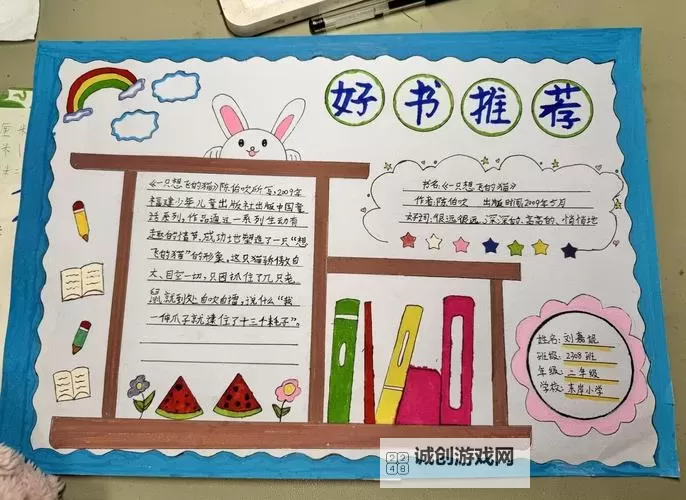 好书推荐
《一只想飞的猫》陈伯吹所写,2009年
福建少年儿童出版社出版中国童
话系列,作品通过一系列生动有
趣的情节,成功地塑造了一只“想
飞的猫”的形象,这只猫骄傲自
大、目空一切,只因抓住了几只老
鼠就到处自吹自擂,说什么“我
一伸爪子就逮住了十三个耗子”。
书名:《一只想飞的猫》
作者:陈伯吹 出版时间2009年5月
好词:很远很远、深深的、高高的、悄悄地
姓名:刘嘉
班级:2308班
年级:二年级
学校:东岸小学
2248
诚创游戏网